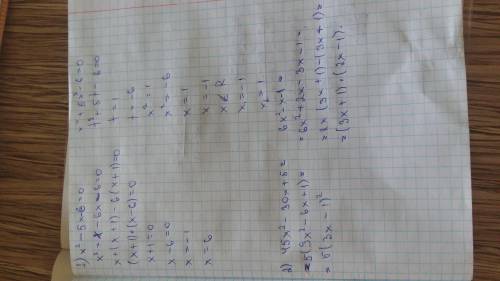 1) x² - 5x - 6 = 0
x² - x - 6x - 6 = 0
x + (x + 1) - 6(x + 1) = 0
(x + 1) + (x - 6) = 0
x + 1 = 0
x - 6 = 0
x = -1
x = 6
x⁴ + 5x² - 6 = 0
t² - 5t - 6 = 0
t = 1
t = -6
x² = 1
x² = -6
x = 1
x = -1
x ∉ R
x₁ = -1
x₂ = 1
2) 45x² - 30x + 5 =
= 5(9x² - 6x + 1) =
= 5(3x - 1)²
6x² - x - 1 =
= 6x² + 2x - 3x - 1 =
= 2x (3x + 1) - (3x + 1) =
= (3x + 1) + (2x - 1).